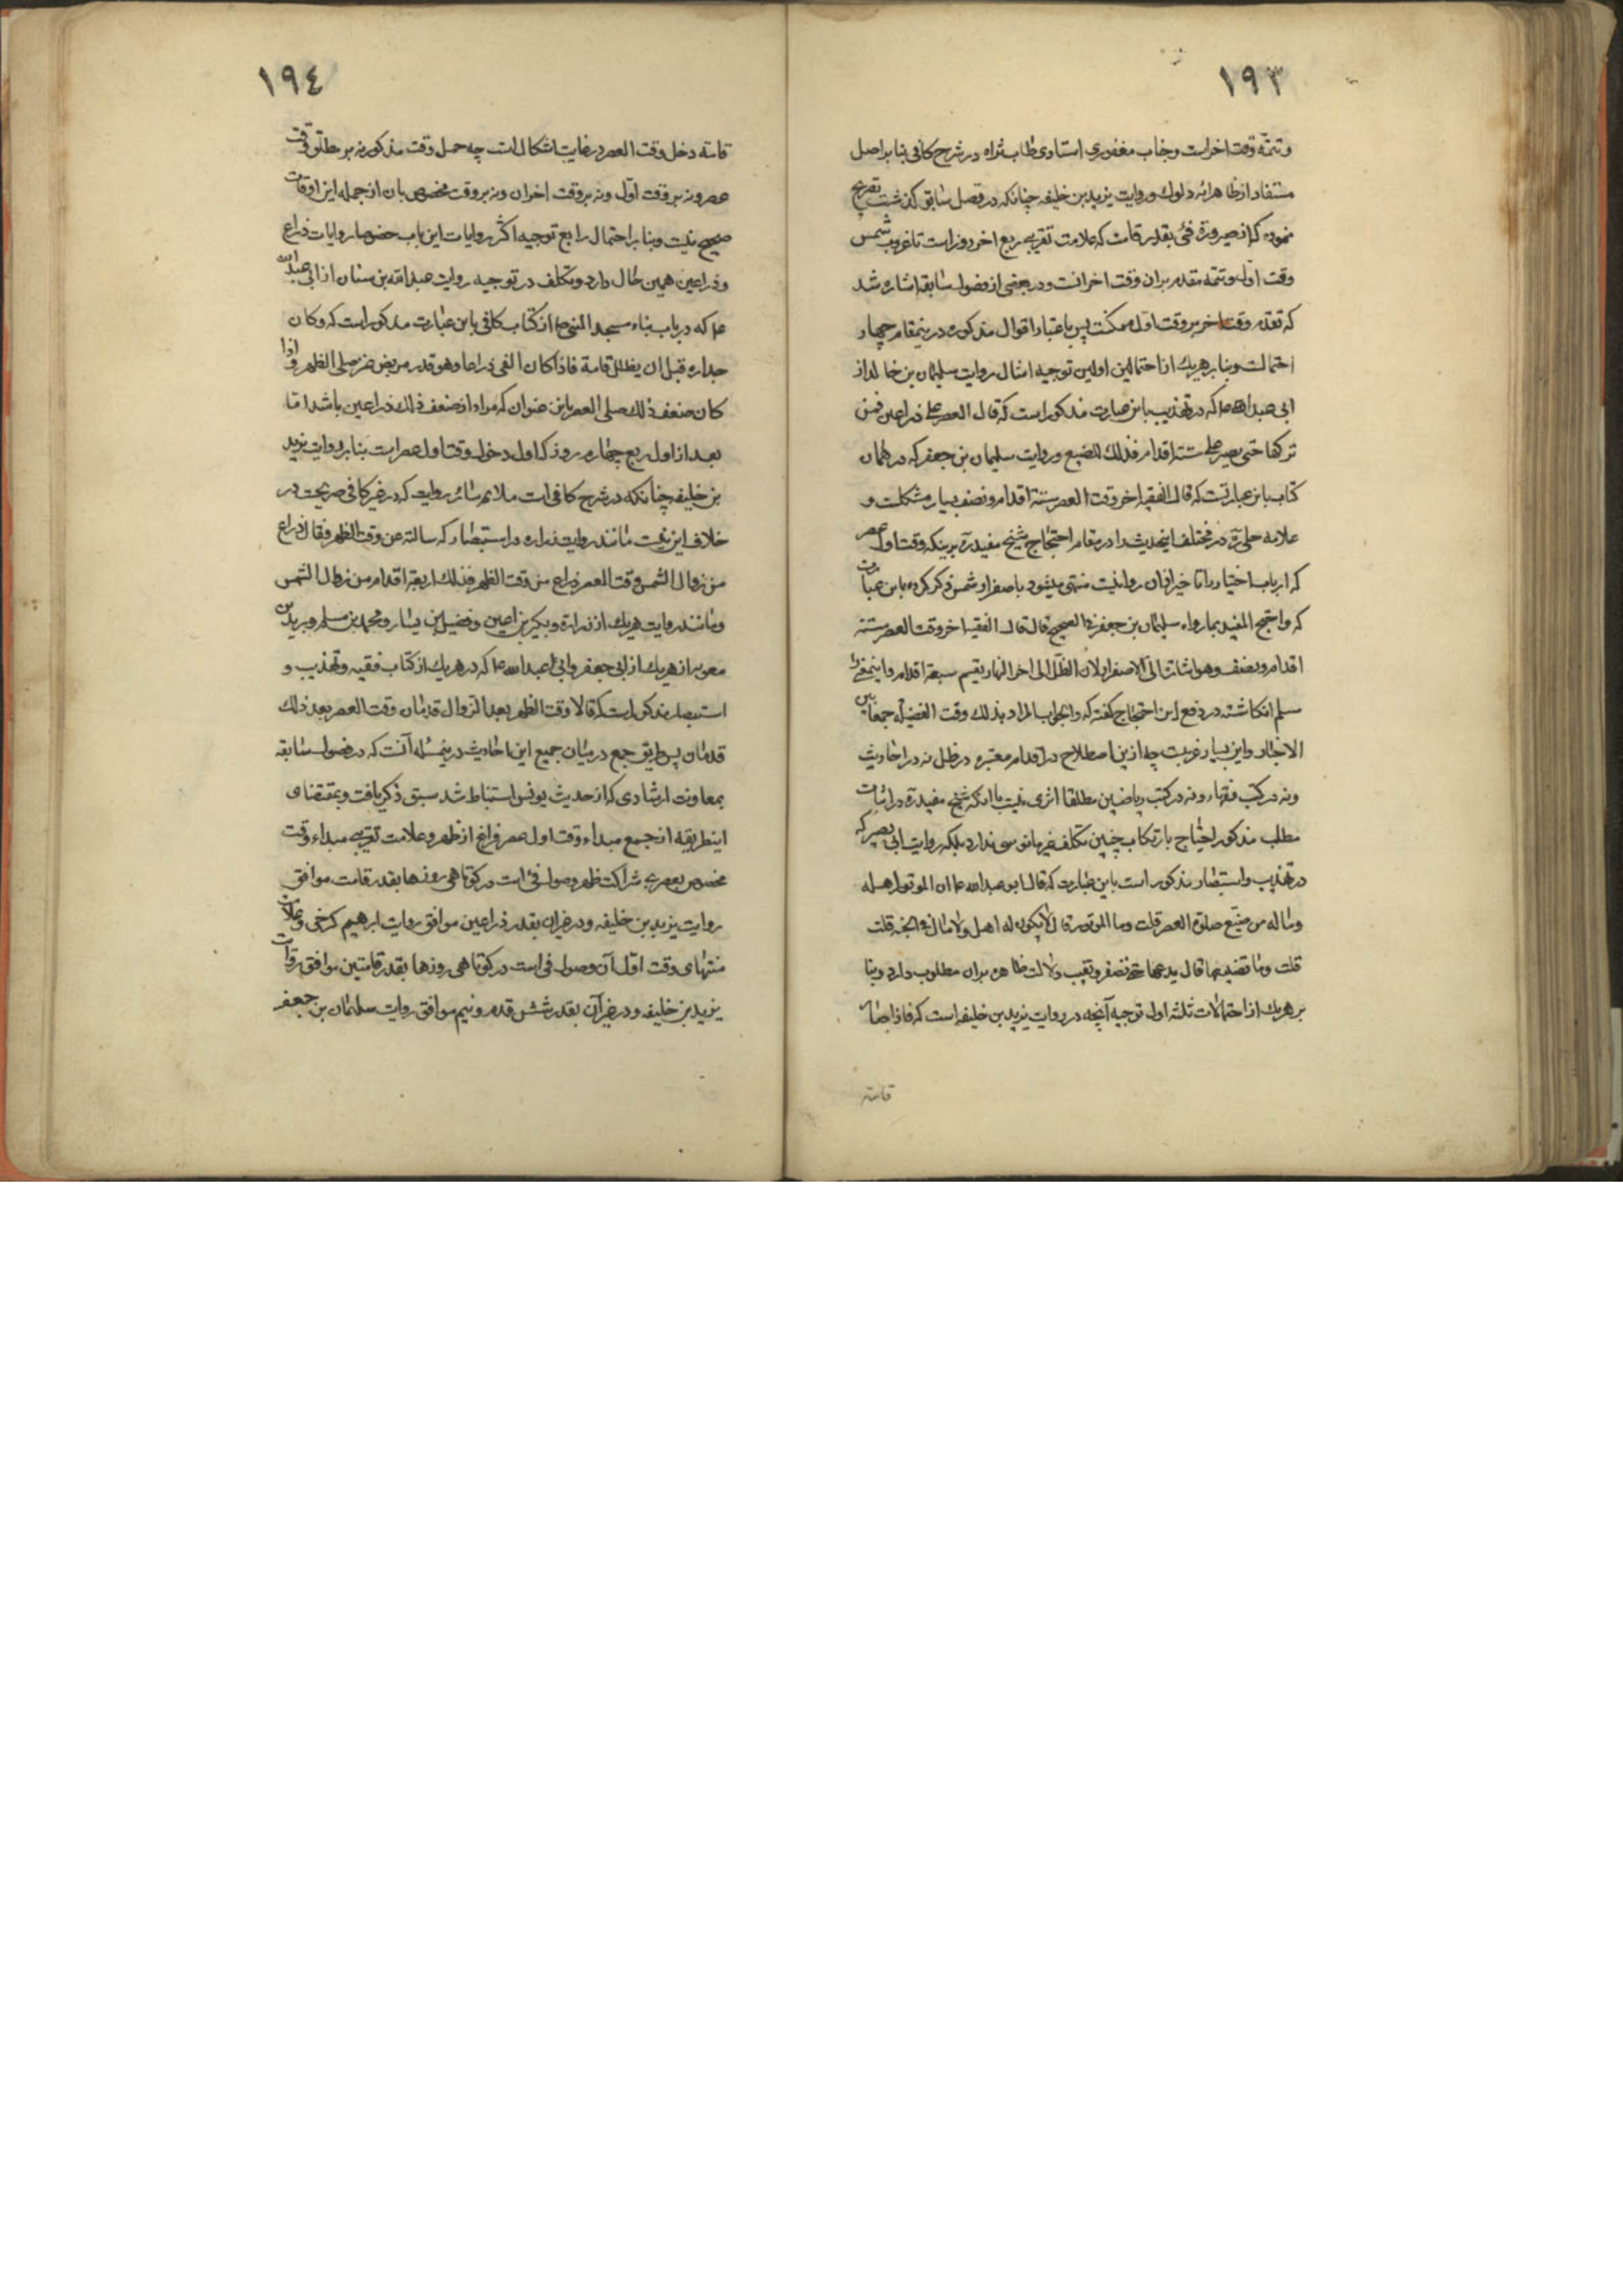 ١٩٣
وتتمّه وقت اخراست وجناب مغفوري استادى طاب ثراه در شرح كافى بنابر اصل
مستفاد از ظاهر ائه دلوك وروايت يزيد بن خليفه چنانكه در فصل سابق گذشت تصريح
نموده كه از صيرورة فئ بقدر قامت كه علامت تقريب ربع اخر روز است تا غروب شمس
وقت اول وتتمه مقدم بران وقت اخر انست ودر بعضى از فصول سابقه اشاره شد
كه تقدم وقت اخر بر وقت اول ممكنست پس باعتبار اقوال مذكوره درينمقام چهار
احتمالست وبنابر هريك از احتمالين اولين توجيه امثال روايت سليمان بن خالد از
ابى عبدالله ع كه در تهذيب باين عبارت مذكور است كه قال العصر على ذراعين فمن
تركها حتى يصير على ستة اقدام فذلك المضيع وروايت سليمان بن جعفر كه در همان
كتاب باين عبارتست كه قال الفقيه اخر وقت العصر ستة اقدام ونصف بسيار مشكلست و
علامه حلى ره در مختلف اينحديث را در مقام احتجاج شيخ مفيد ره برينكه وقت اول عصر
كه ارباب اختيار را تاخير ازان روا نيست منتهى ميشود باصفرار شمس ذكر كرده باين عبارت
كه واحتج المفيد بما رواه سليمان بن جعفر فى الصحيح قال قال الفقيه اخر وقت العصر ستة
اقدام ونصف وهو اشارة الى الاصفرار لان الظل الى اخر النهار يقسم سبعة اقدام واينمقدمه
مسلم انگاشته در دفع اين احتجاج گفته كه والجواب المراد بذلك وقت الفضيلة جمعا بين
الاخبار واين بسيار غريبست چه ازين اصطلاح در اقدام معتبره در ظل نه در احاديث
ونه در كتب فقهاء ونه در كتب رياضيين مطلقا اثرى نيست با آنكه شيخ مفيد ره در اثبات
مطلب مذكور احتياج بارتكاب چنين تكلف غير مانوسى ندارد بلكه روايت ابى بصير كه
در تهذيب واستبصار مذكور است باين عبارت كه قال ابو عبدالله ع ان الموتور اهله
وماله من ضيّع صلوة العصر قلت وما الموتور قال لا يكون له اهل ولا مال فى الجنة قلت
قلت وما تضييعها قال يدعها حتى تصفر وتغيب دلالت ظاهره بران مطلوب دارد وبنا
بر هريك از احتمالات ثلثه اول توجيه آنچه در روايت يزيد بن خليفه است كه فاذا صار
قامته
١٩٤
قامته دخل وقت العصر در غايت اشكال است چه حمل وقت مذكور نه بر مطلق وقت
عصر ونه بر وقت اول ونه بر وقت اخران ونه بر وقت مخصوص بان از جمله اين اوقات
صحيح نيست وبنابر احتمال رابع توجيه اكثر روايات اين باب خصوصا روايات ذراع
وذراعين همين حال دارد وتكلف در توجيه روايت عبدالله بن سنان از ابى عبدالله
ع كه در باب بناء مسجد النبى ص از كتاب كافى باين عبارت مذكور است كه وكان
جداره قبل ان يظلل قامة فاذا كان الفئ ذراعا وهو قدر مربض عنز صلى الظهر واذا
كان ضعف ذلك صلى العصر باين عنوان كه مراد از ضعف ذلك ذراعين باشد اما
بعد از اول ربع چهارم روز كه اول دخول وقت اول عصر است بنابر روايت يزيد
بن خليفه چنانكه در شرح كافى است ملايم سائر روايت كه در غير كافى صريحست در
خلاف اين نيست مانند روايت زراره در استبصار كه سالته عن وقت الظهر فقال ذراع
من زوال الشمس وقت العصر ذراع من وقت الظهر فذلك اربعة اقدام من زوال الشمس
ومانند روايت هريك از زراره وبكير بن اعين وفضيل بن يسار ومحمد بن مسلم وبريد بن
معويه از هريك از ابى جعفر وابى عبدالله ع كه در هريك از كتاب فقيه وتهذيب و
استبصار مذكور است كه قالا وقت الظهر بعد الزوال قدمان وقت العصر بعد ذلك
قدمان پس طريق جمع درميان جميع اين احاديث درينمسئله آنست كه در فصول سابقه
بمعاونت ارشادى كه از حديث يونس استنباط شد سبق ذكر يافت وبمقتضاى
اينطريقه از جمع مبداء وقت اول عصر فراغ از ظهر وعلامت تقريبى مبداء وقت
مخصوص بعصر بى شراكت ظهر وصول فئ است در كوتاهى روزها بقدر قامت موافق
روايت يزيد بن خليفه ودر غيران بقدر ذراعين موافق روايت ابرهيم كرخى وعلامت
منتهاى وقت اول آن وصول فى است در كوتاهى روزها بقدر قامتين موافق روايت
يزيد بن خليفه ودر غير آن بقدر شش قدم ونيم موافق روايت سليمان بن جعفر